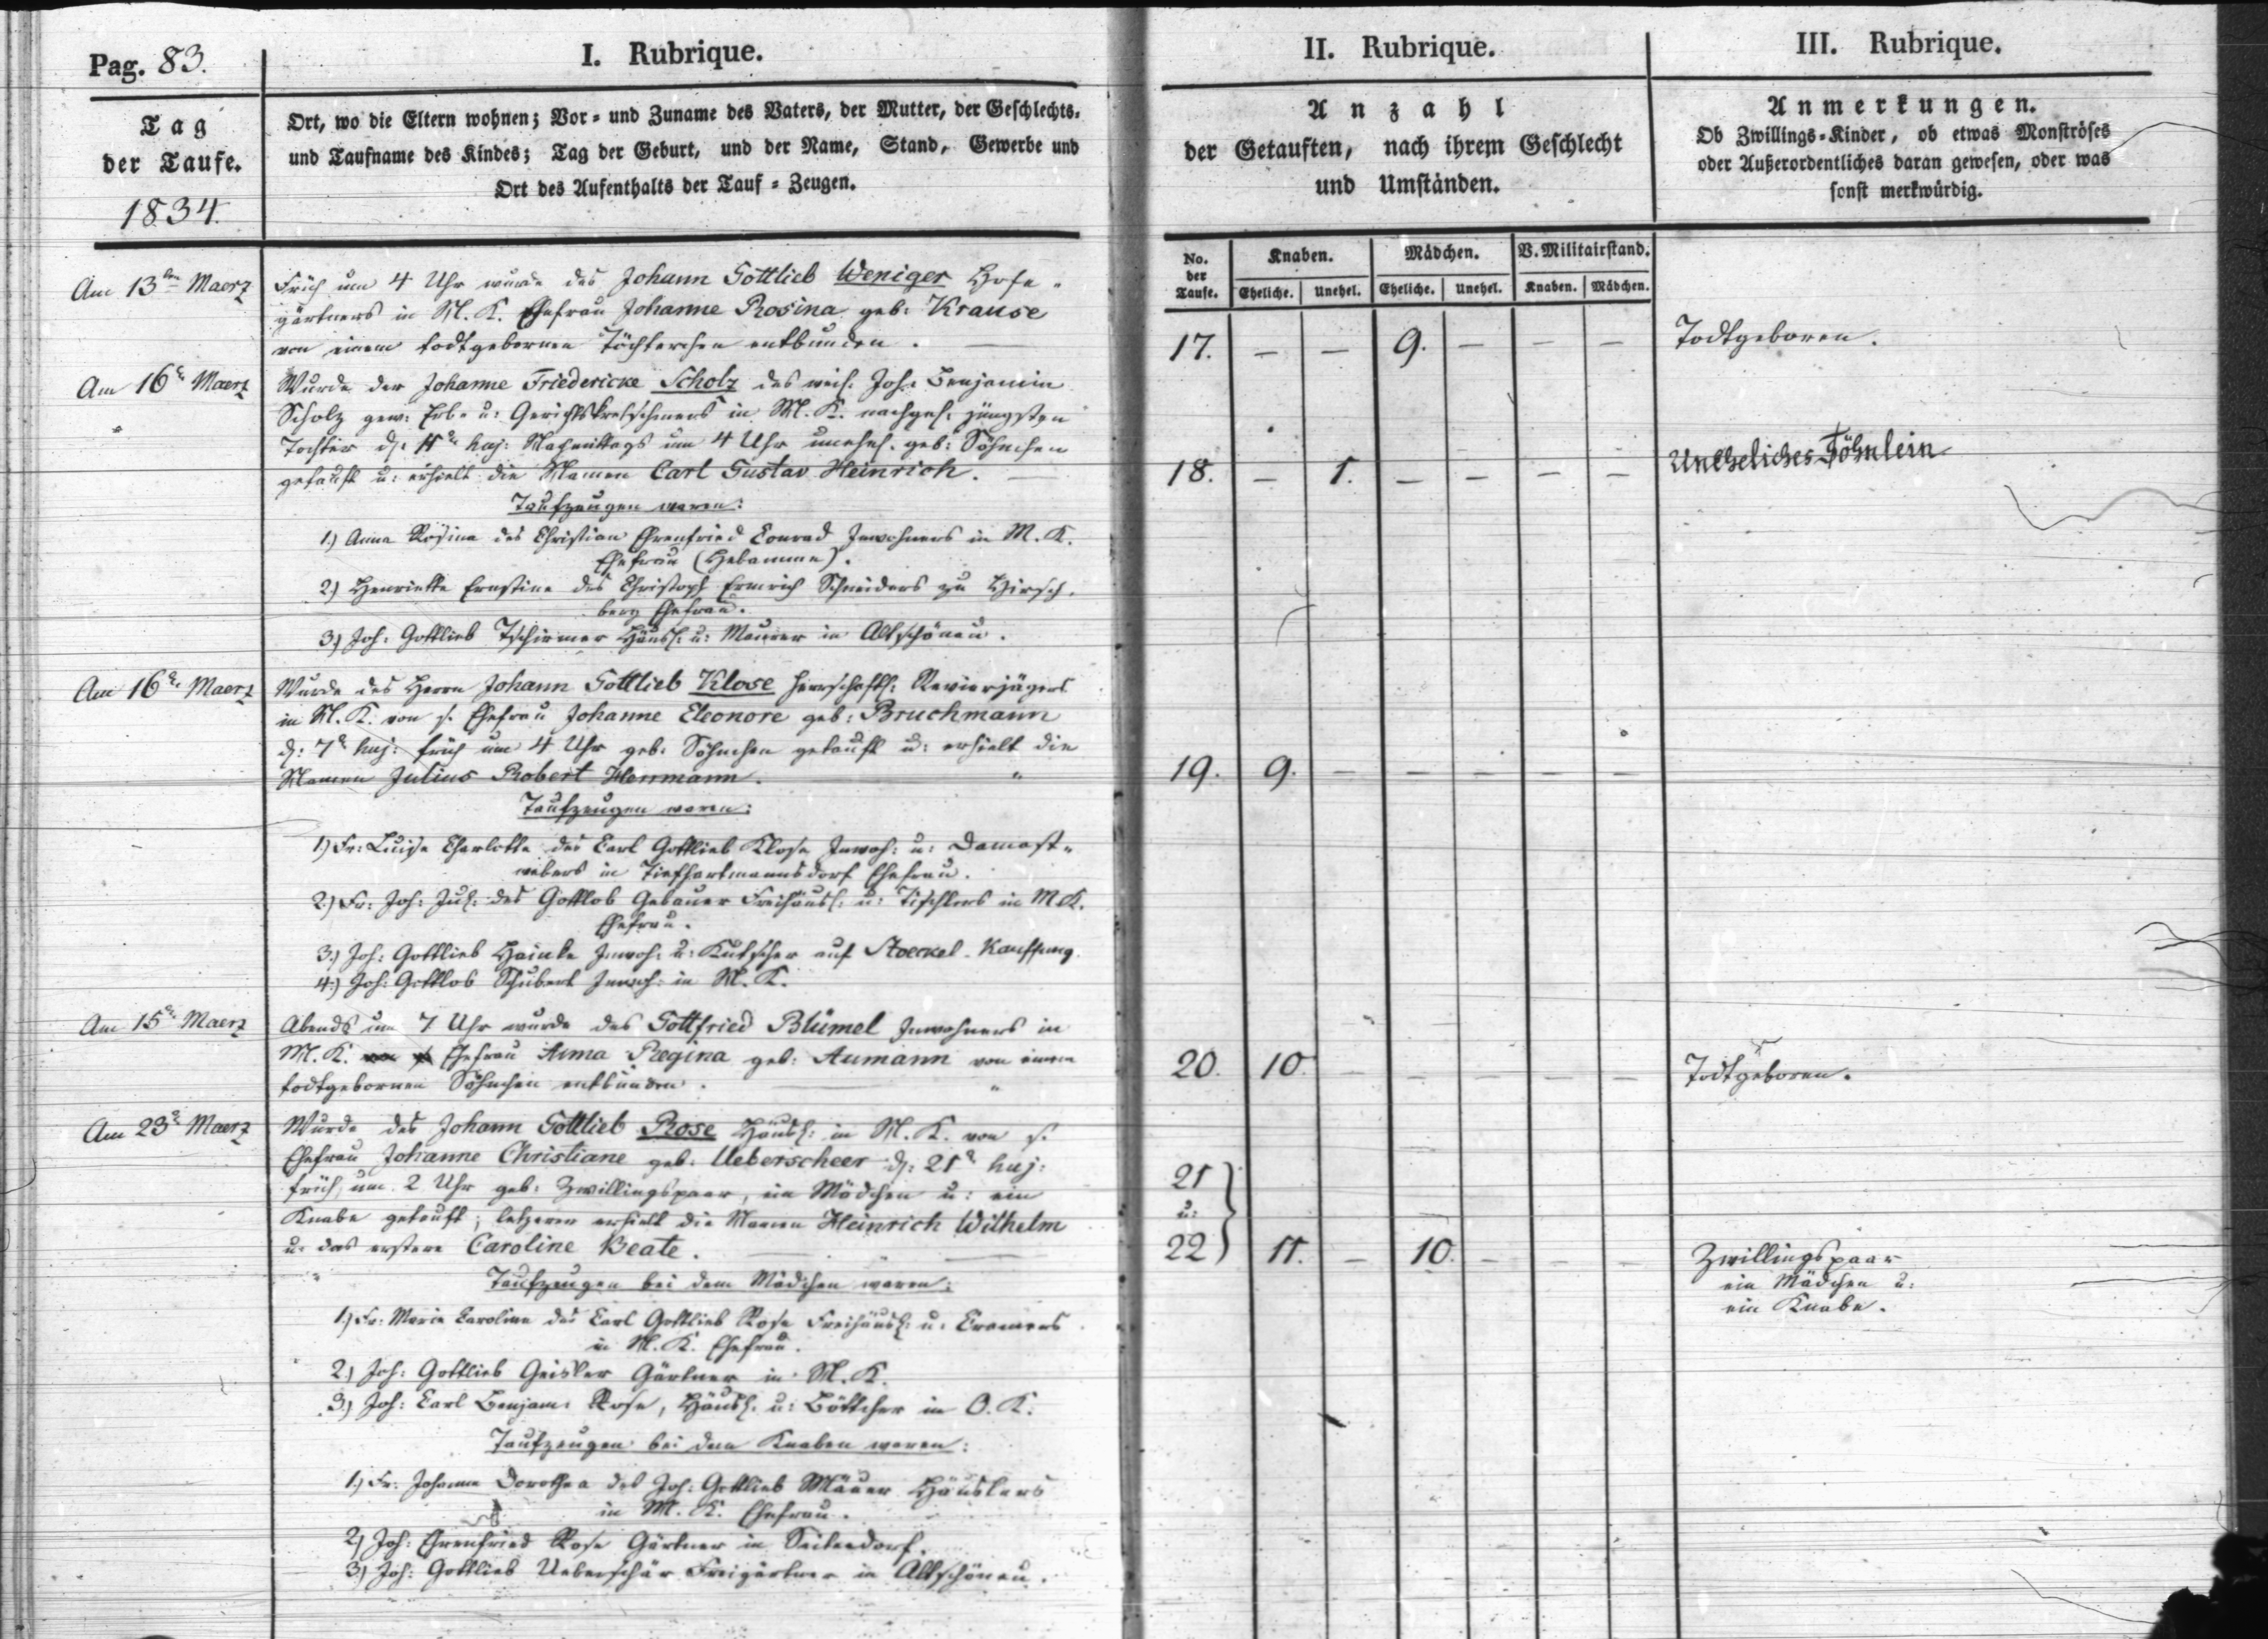 Pag. 83.
I. Rubrique.
II. Rubrique.
III. Rubrique.
Tag
der Taufe.
1834.
Ort, wo die Eltern wohnen; Vor- und Zuname des Vaters, der Mutter, der Geschlechts-
und Taufname des Kindes; Tag der Geburt, und der Name, Stand, Gewerbe und
Ort des Aufenthalts der Tauf-Zeugen.
Anzahl
der Getauften, nach ihrem Geschlecht
und Umständen.
Anmerkungen.
Ob Zwillings-Kinder, ob etwas Monströses
oder Außerordentliches daran gewesen, oder was
sonst merkwürdig.
No. der Taufe.
Knaben.
Mädchen.
V. Militairstand.
Eheliche. Unehel. Eheliche. Unehel. Knaben. Mädchen.
Am 13ten Maerz
Früh um 4 Uhr wurde des Johann Gottlieb Weniger Hofe-
gärtners in M. K. Ehefrau Johanne Rosina geb: Krause
von einem todtgebornen Töchterchen entbunden.
17. – – 9. – – –
Todtgeboren.
Am 16n Maerz
Wurde der Johanne Friedericke Scholz des weil. Joh: Benjamin
Scholz gew: Erb- u: Gerichtskretschmers in M. K. nachgel: jüngsten
Tochter d: 11n huj: Nachmittags um 4 Uhr unehel. geb: Söhnchen
getauft u: erhielt die Namen Carl Gustav Heinrich.
18. – 1. – – – –
Uneheliches Söhnlein
Taufzeugen waren:
1.) Anna Rosina des Christian Ehrenfried Conrad Inwohners in M. K.
Ehefrau (Hebamme).
2.) Henriette Ernstine des Christoph Ermrich Schneiders zu Hirsch-
berg Ehefrau.
3.) Joh: Gottlieb Tschirner Häusl: u: Maurer in Altschönau.
Am 16n Maerz
Wurde des Herrn Johann Gottlieb Klose herrschaftl: Revierjägers
in M. K. von s. Ehefrau Johanne Eleonore geb: Bruchmann
d: 7n huj: früh um 4 Uhr geb: Söhnchen getauft u: erhielt die
Namen Julius Robert Herrmann.
19. 9. – – – – –
Taufzeugen waren:
1.) Fr: Luise Charlotte des Carl Gottlieb Klose Inwoh: u: Damast-
webers in Tiefhartmannsdorf Ehefrau.
2.) Fr: Joh: Jul: des Gottlob Gebauer Freihäusl: u: Tischlers in M. K.
Ehefrau.
3.) Joh: Gottlieb Hainke Inwoh: u: Kutscher auf Stoeckel-Kauffung.
4.) Joh: Gottlob Schubert Inwoh: in M. K.
Am 15n Maerz
Abends um 7 Uhr wurde des Gottfried Blümel Inwohners in
M. K. Ehefrau Anna Regina geb: Aumann von einem
todtgebornen Söhnchen entbunden.
20. 10. – – – – –
Todtgeboren.
Am 23n Maerz
Wurde des Johann Gottlieb Rose Häusl: in M. K. von s.
Ehefrau Johanne Christiane geb: Ueberscheer d: 21n huj:
früh um 2 Uhr geb: Zwillingspaar, ein Mädchen u: ein
Knabe getauft; letzerer erhielt die Namen Heinrich Wilhelm
u: das erstere Caroline Beate.
21
u:
22 11. – 10. – – –
Zwillingspaar
ein Mädchen u:
ein Knabe.
Taufzeugen bei dem Mädchen waren:
1.) Fr: Marie Caroline des Carl Gottlieb Rose Freihäusl: u: Cramers
in M. K. Ehefrau.
2.) Joh: Gottlieb Geisler Gärtner in M. K.
3.) Joh: Carl Benjam: Rose, Häusl: u: Böttcher in O. K.
Taufzeugen bei dem Knaben waren:
1.) Fr: Johanne Dorothea des Joh: Gottlieb Mäuer Häuslers
in M. K. Ehefrau.
2.) Joh: Ehrenfried Rose Gärtner in Seitendorf.
3.) Joh: Gottlieb Ueberschär Freigärtner in Altschönau.